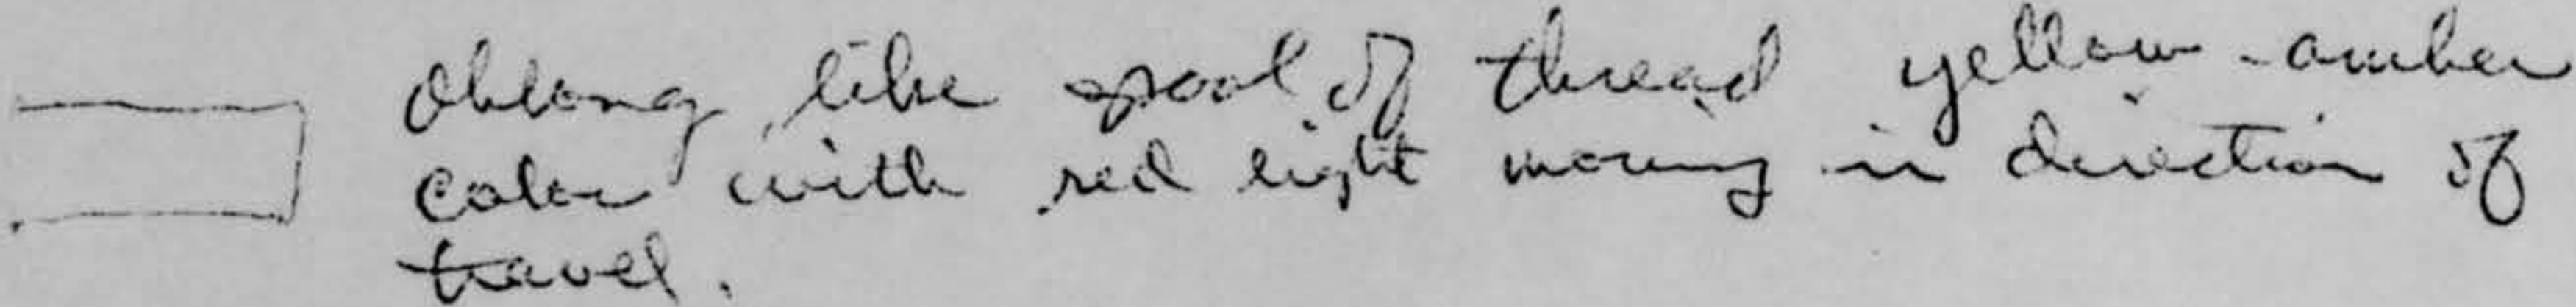 Oblong, like spool of thread yellow-amber
color with red light moving in direction of
travel.